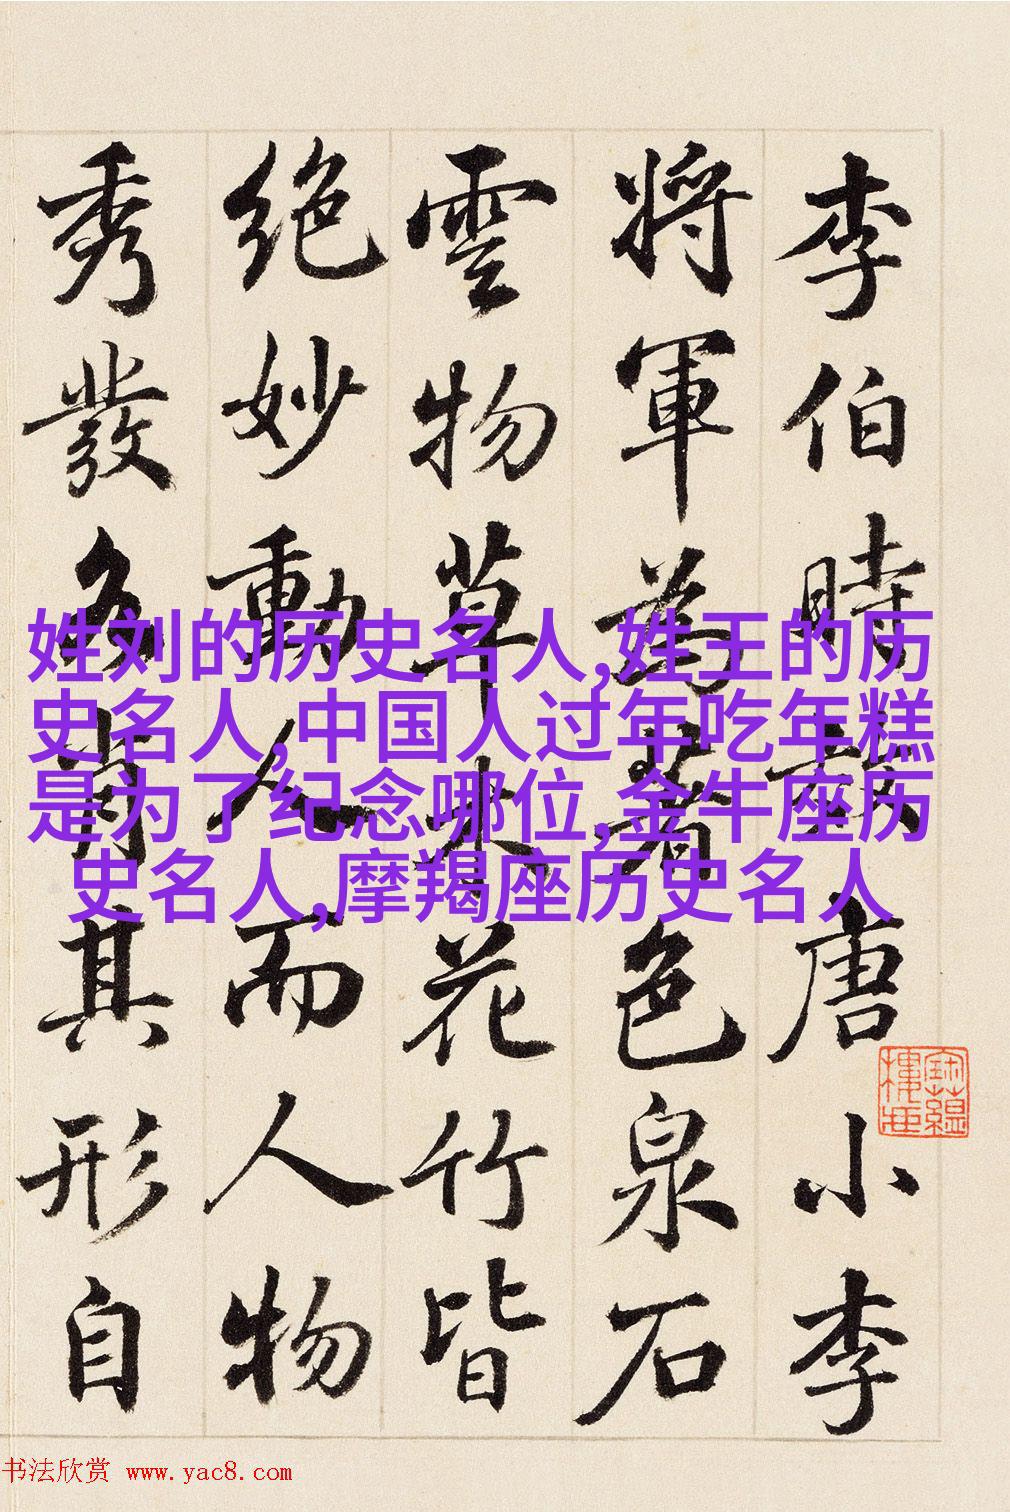 李伯時效唐小李
將軍為著色泉石
雲物草木花竹皆
絕妙動人而人物
秀發各肖其形自
姓刘的历史名人,姓王的历
史名人,中国人过年吃年糕
是为了纪念哪位,金牛座历
史名人,摩羯座历史名人
书法欣赏 www.yac8.com